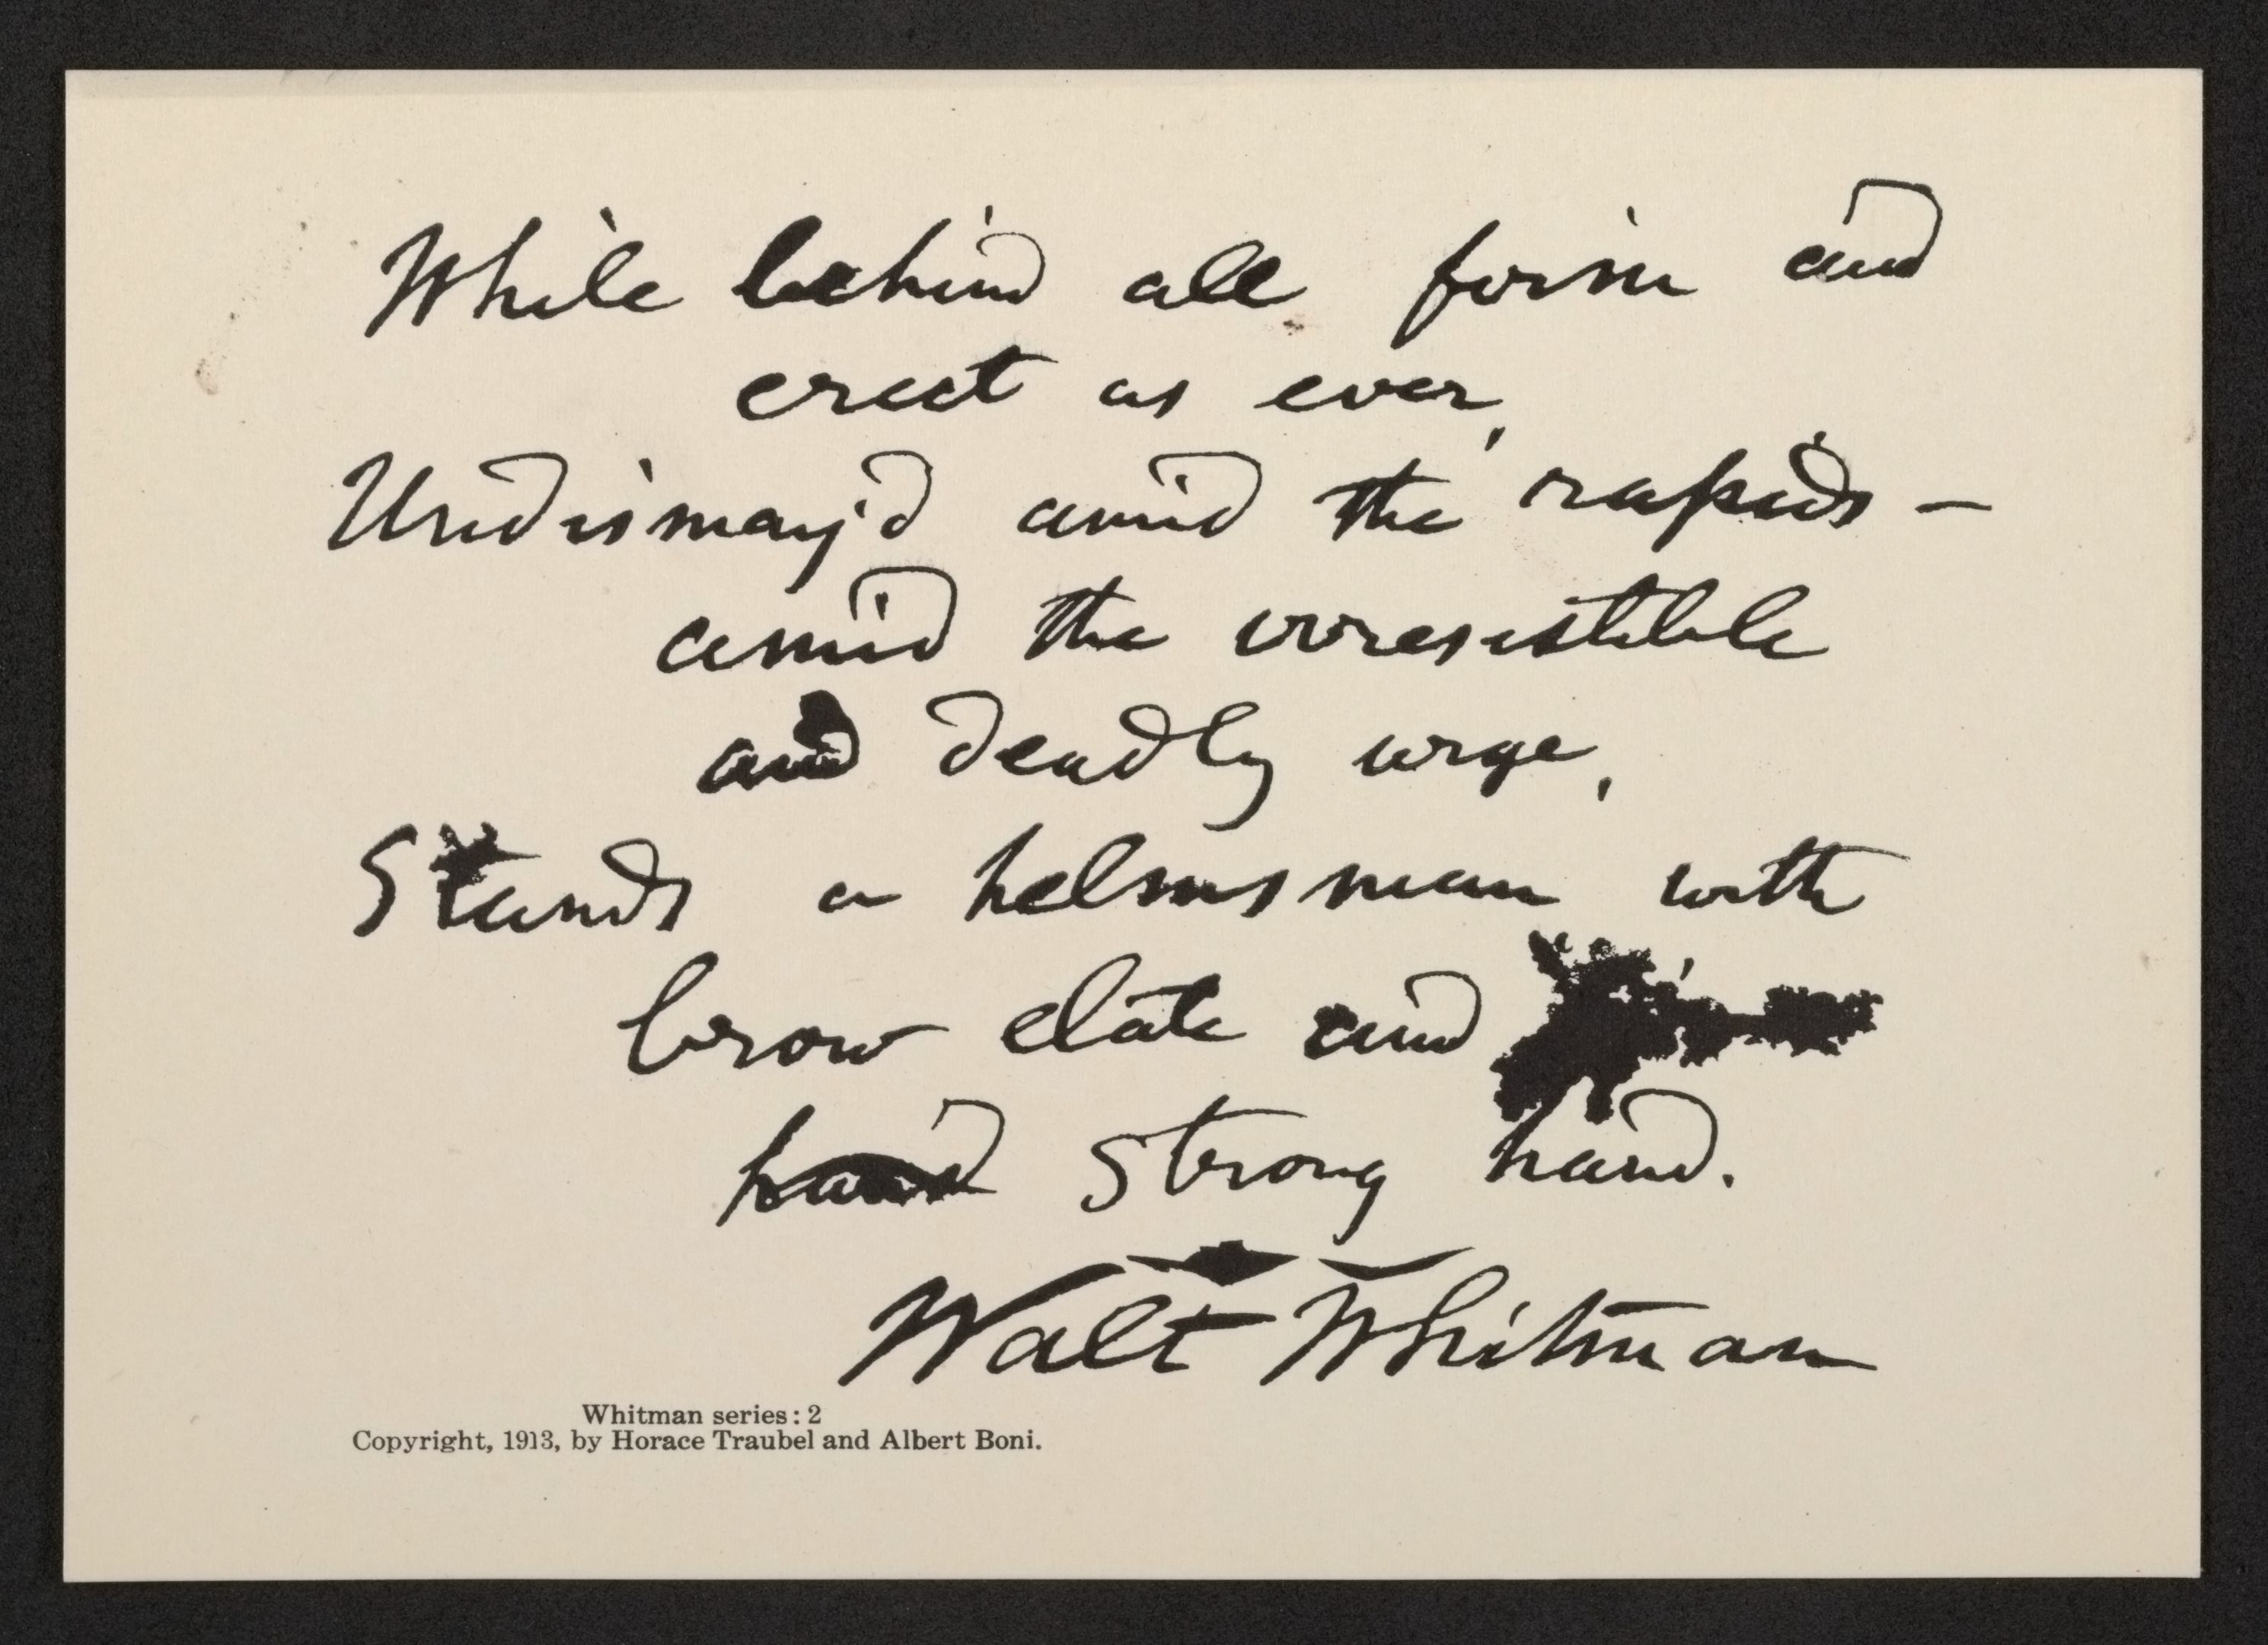 While behind all firm and
erect as ever,
Undismay'd amid the rapids –
amid the irresistible
and deadly urge,
Stands a helmsman with
brow elate and
hand strong hand.
Walt Whitman
Whitman series: 2
Copyright, 1913, by Horace Traubel and Albert Boni.